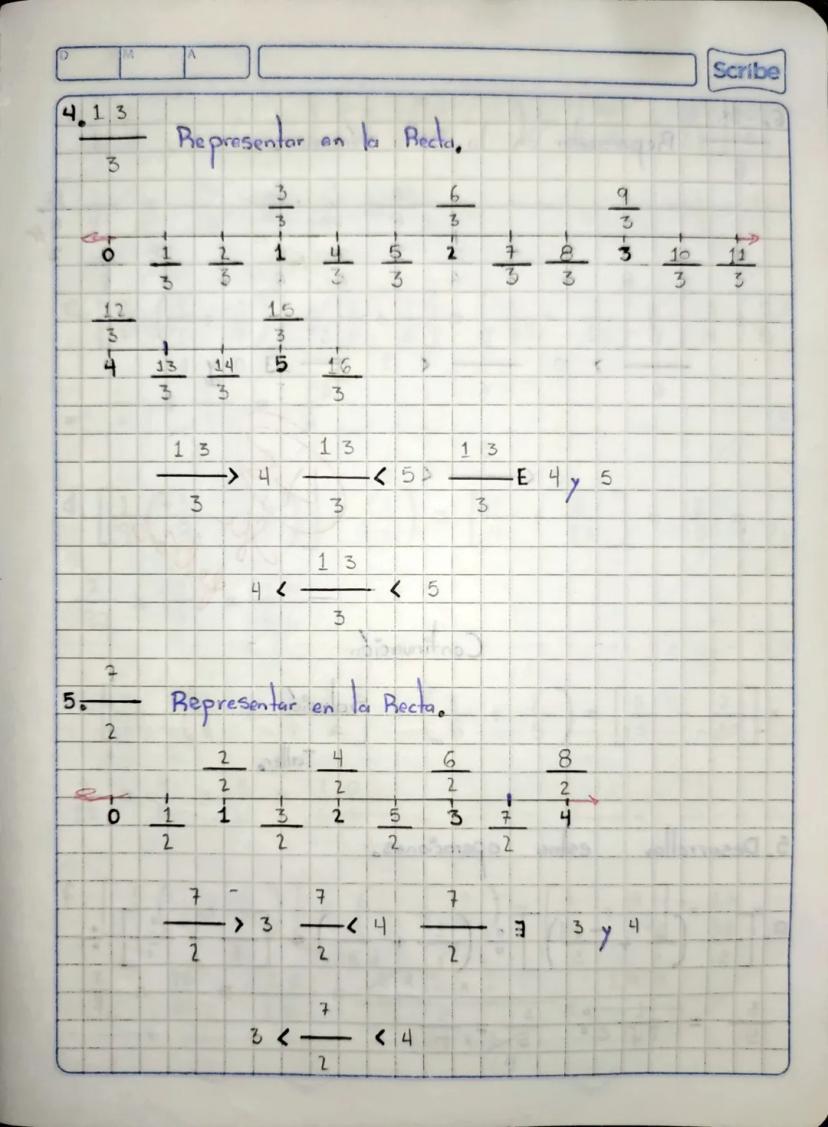 D M A
Scribe
4. 13/3 Representar en la Recta.
3/3 6/3 9/3
0 1/3 2/3 1 4/3 5/3 2 7/3 8/3 3 10/3 11/3
12/3 15/3
4 13/3 14/3 5 16/3
13/3 > 4 13/3 < 5 > 13/3 E 4 y 5
4 < 13/3 < 5
5. 7/2 Representar en la Recta.
2/2 4/2 6/2 8/2
0 1/2 1 3/2 2 5/2 3 7/2 4
7/2 > 3 7/2 < 4 7/2 ∃ 3 y 4
3 < 7/2 < 4